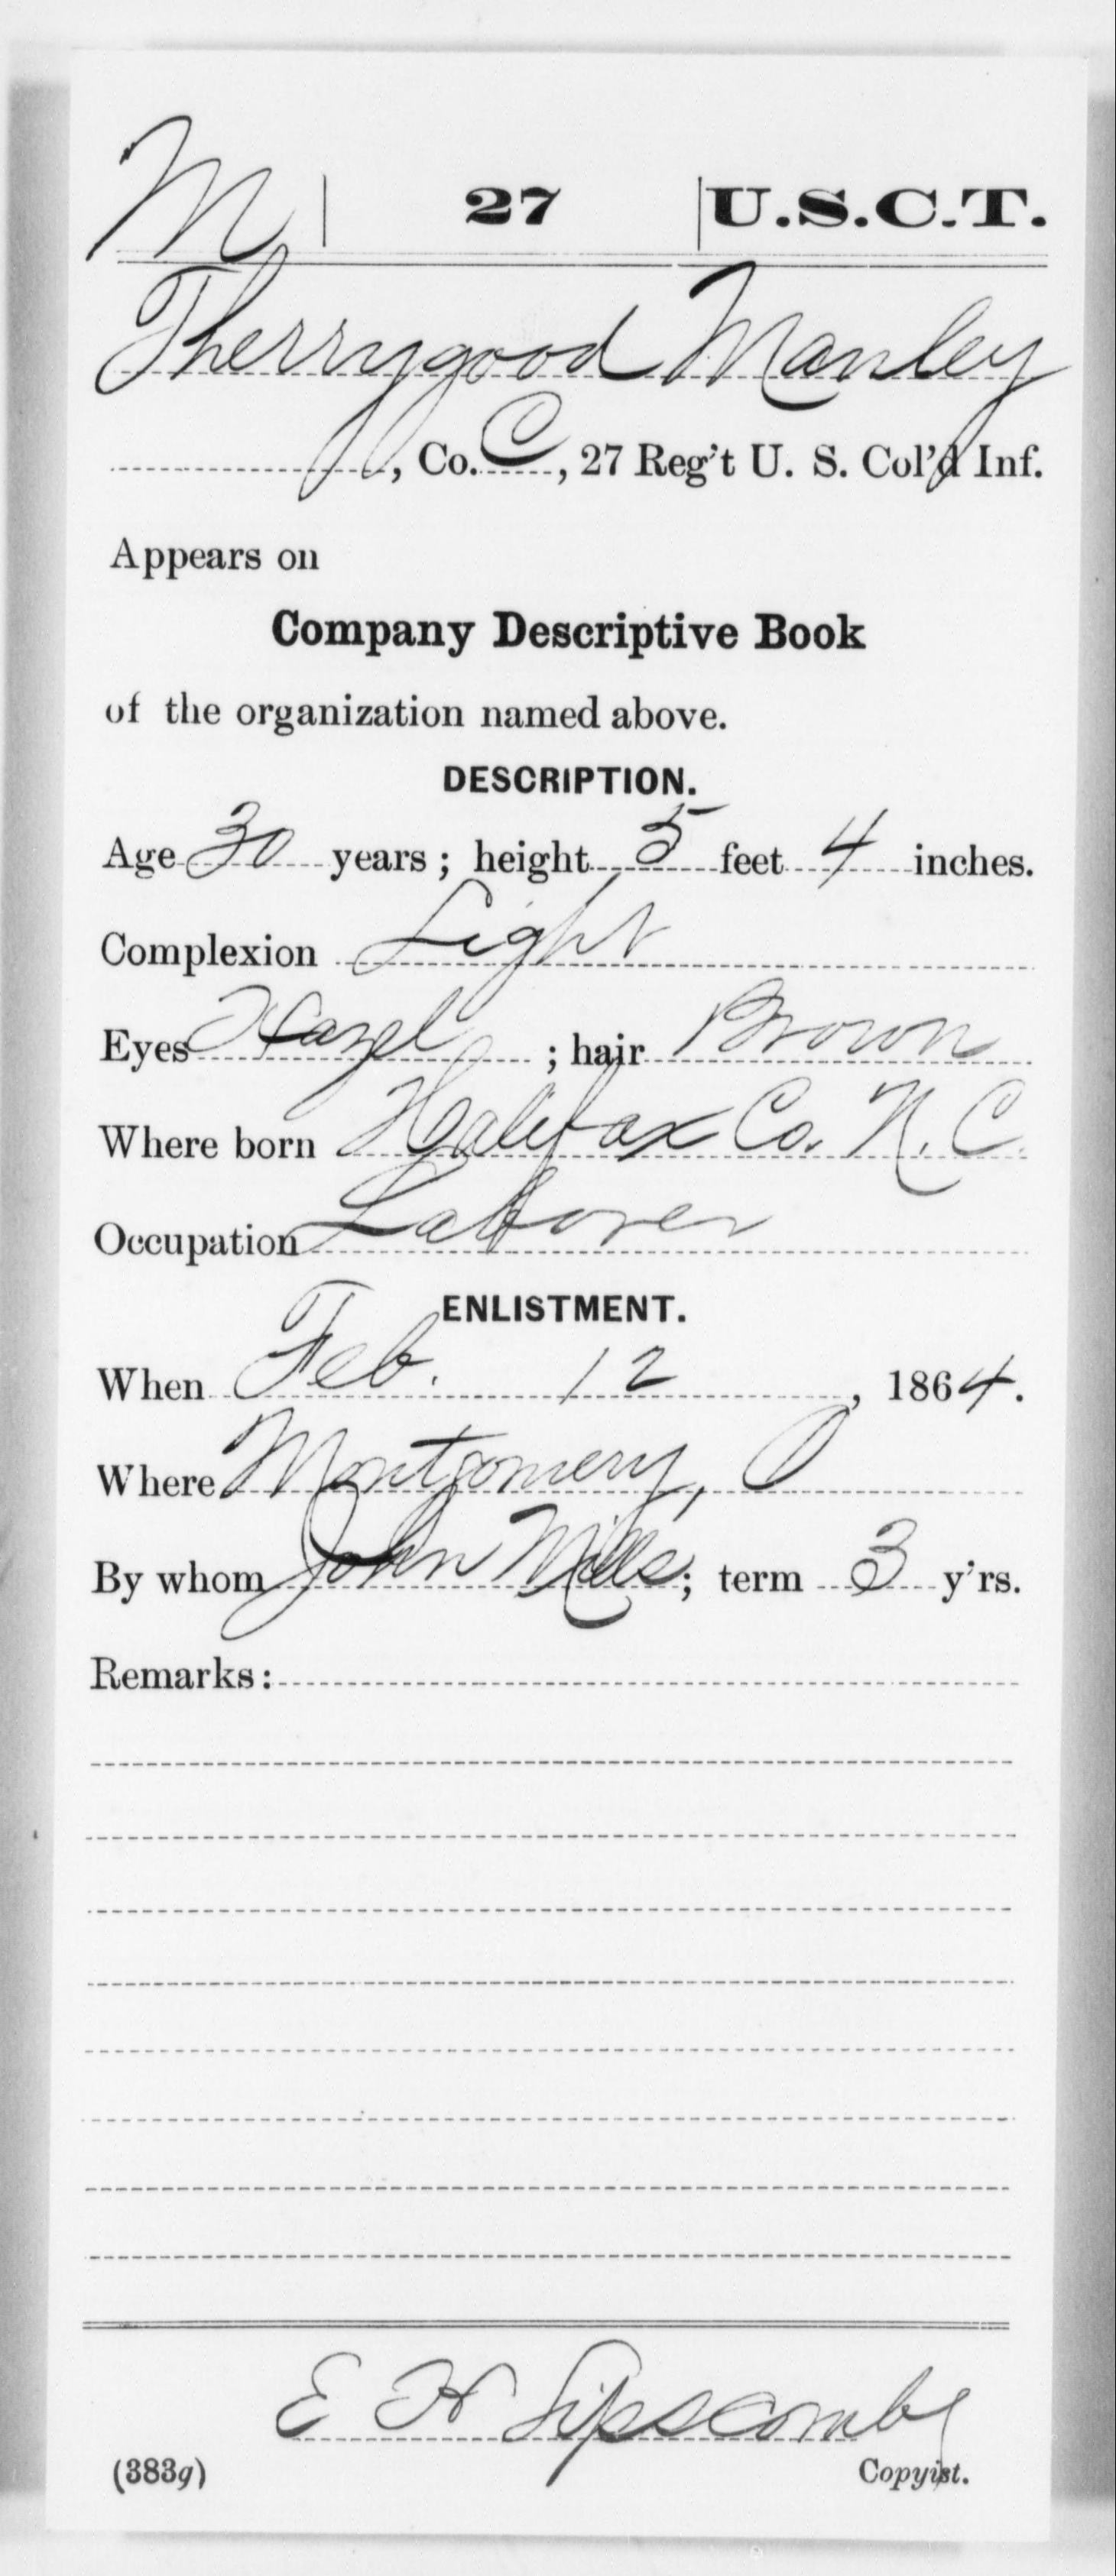 M | 27 | U.S.C.T.
Therrygood Manley
, Co. C, 27 Reg't U. S. Col'd Inf.
Appears on
Company Descriptive Book
of the organization named above.
DESCRIPTION.
Age 30 years; height 5 feet 4 inches.
Complexion Light
Eyes Hazel; hair Brown
Where born Halifax Co. N. C.
Occupation Laborer
ENLISTMENT.
When Feb. 12, 1864.
Where Montgomery, O
By whom John Mills; term 3 y'rs.
Remarks:
E H Lipscomb
(383g) Copyist.